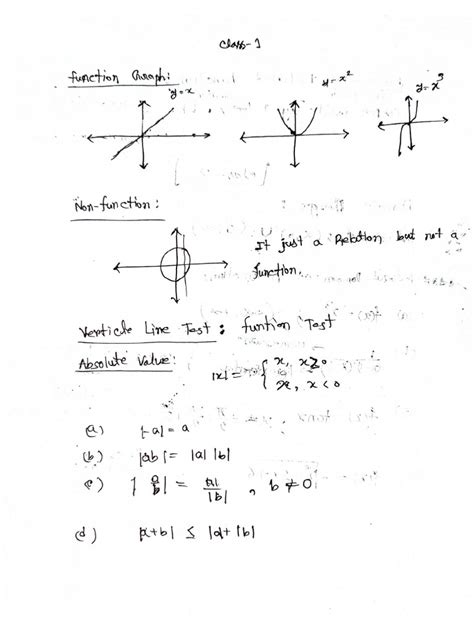 Class-1
function Graph:
y=x
y=x²
y=x³
Non-function:
It just a Relation but not a
function.
Verticle Line Test: funtion Test
Absolute Value:
|x| = { x, x≥0
x, x<0
(a) |-a| = a
(b) |ab| = |a| |b|
(c) |a/b| = |a|/|b| , b ≠ 0
(d) |a+b| ≤ |a|+|b|